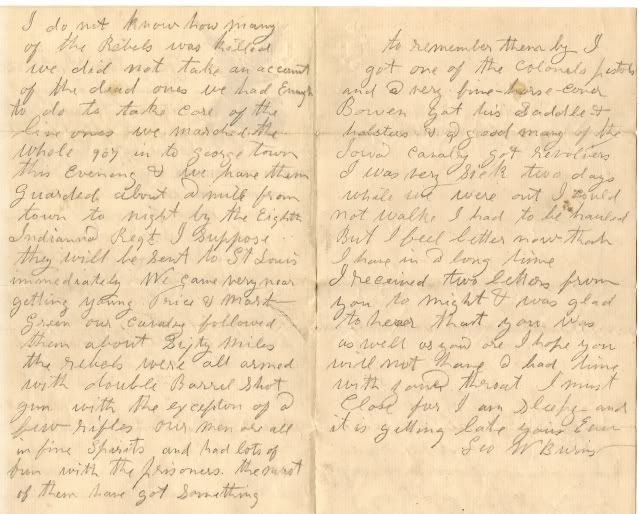 I do not know how many
of the Rebels was killed
we did not take an account
of the dead ones we had Enough
to do to take care of the
live ones we marched the
whole 907 in to george town
this Evening & we have them
guarded about a mile from
town to night by the Eighth
Indianna Regt I Suppose
they will be sent to St Louis
immediately We came very near
getting young Price & Mart
Green our cavalry followed
them about Sixty miles
the rebels were all armed
with double Barrel Shot
gun with the exception of a
few rifles our men are all
in fine Spirits and had lots of
fun with the prisoners. the most
of them have got something
to remember them by I
got one of the Colonals pistols
and a very fine horse
Bowen got his Saddle &
holsters & a good many of the
Iowa cavalry got revolvers
I was very Sick two days
while we were out I could
not walk I had to be hauled
But I feel better now than
I have in a long time
I received two letters from
you to night & was glad
to hear that you was
as well as you are I hope you
will not have a bad time
with your throat I must
Close for I am Sleepy and
it is getting late yours Ever
Geo W Burns